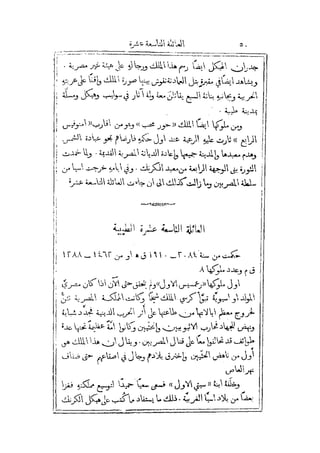 ٥٠ العائلة التاسعة عشرة
جدران الهيكل ايضًا رسم هذا الملك ورجاله على هيئة غير مصرية.
ويشاهد ايضًا في مقبرتو بتل العمارنة نقوش بينها صورة الملك واقفًا على عربتو
الحربية وبجانبه بناتة السبع يقاتلن معه وله آثار في سوليب وهيكل ومسلة
بمدينة طيبة.
ومن ملوكها ايضًا الملك «حور محب» وهو من أقارب «امنوفيس
الرابع» ثارت عليو الرعية عند اول حكمو فارضاهم بمحو عبادة الشمس
وهدم معبدها والمدينة جميعها واعادة الديانة المصرية القديمة. ولما خمدت
الثورة بنى الوجهة الرابعة من معبد الكرنك. وفي ايامه خرجت اسيا من
سلطة المصريين وما زالت كذلك الى ان جاءت العائلة التاسعة عشرة
العائلة التاسعة عشرة الطيبية
حكمت من سنة ٢٠٨٤ – ١٩١٠ ق ه او من ١٤٦٢ – ١٢٨٨
ق م وعدد ملوكها ٨
اول ملوكها «رعمسيس الاول» ولم يتحقق حتى الآن اذا كان مصري
المولد او اسيويه تبوّأ كرسي الملك شيخًا وكانت المملكة المصرية تئنّ
لخروج معظم ايالاتها من طاعتها على أثر الحرب الدينية فجدد شبابه
ونهض للجهاد فحارب الاثيوبيين والحثيين وكانوا امة عظيمة تحتها عدة
طوائف قد تحالفوا معًا على قتال المصريين. ويقال ان هذا الملك هو
أول من ناهض الحثيين واخترق بلادهم وجال في اصقاعهم حتى ضفاف
نهر العاص
وخلفة ابنة «سيتي الاول» فسعى سعيًا حميدًا لتوسيع مملكتو فغزا
بعضًا من بلاد اسيا الغربية. ذلك ما يستفاد مما كتب على هيكل الكرنك